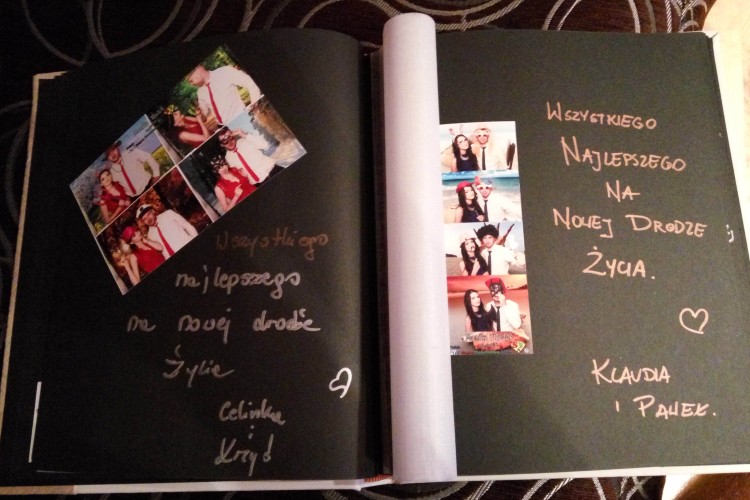 Wszystkiego
najlepszego
na nowej drodze
Życie
Celinka
i
Krzyś
WSZYSTKIEGO
NAJLEPSZEGO
NA
NOWEJ DRODZE
ŻYCIA.
KLAUDIA
i PAWEŁ.